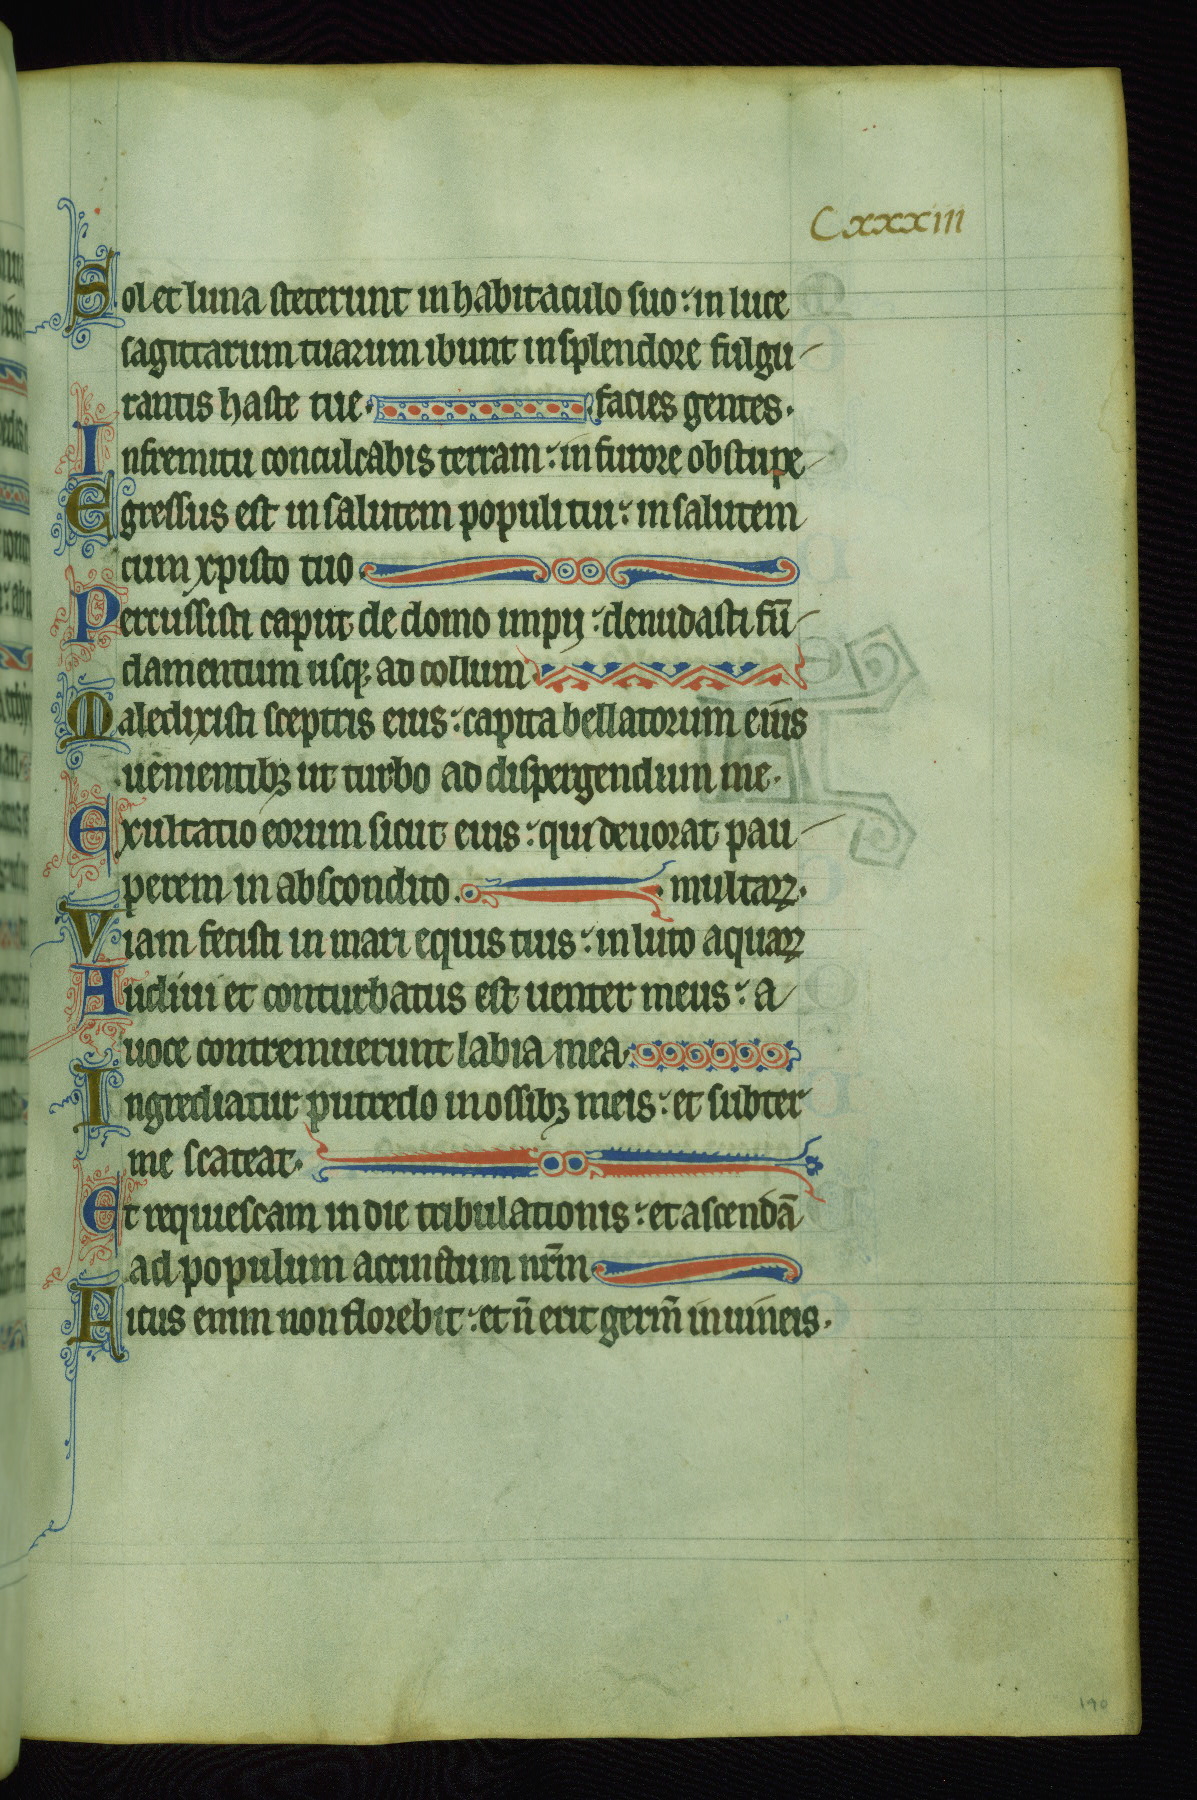 Cxxxiii
Sol et luna steterunt in habitaculo suo: in luce
sagittarum tuarum ibunt in splendore fulgu
rantis haste tue. facies gentes.
In fremitu conculcabis terram: in furore obstupe
Egressus est in salutem populi tui: in salutem
cum xpisto tuo
Percussisti caput de domo impij: denudasti fū
damentum usqꝫ ad collum
Maledixisti sceptris eius: capita bellatorum eius
uenientibꝫ ut turbo ad dispergendum me.
Exultatio eorum sicut eius: qui deuorat pau
perem in abscondito. multaꝝ.
Viam fecisti in mari equis tuis: in luto aquaꝝ
Audiui et conturbatus est uenter meus: a
uoce contremuerunt labia mea.
Ingrediatur putredo in ossibꝫ meis: et subter
me scateat.
Et requiescam in die tribulationis: et ascendā
ad populum accinctum nr̄m
Ficus enim non florebit: et n̄ erit germ̄ in uineis.
190